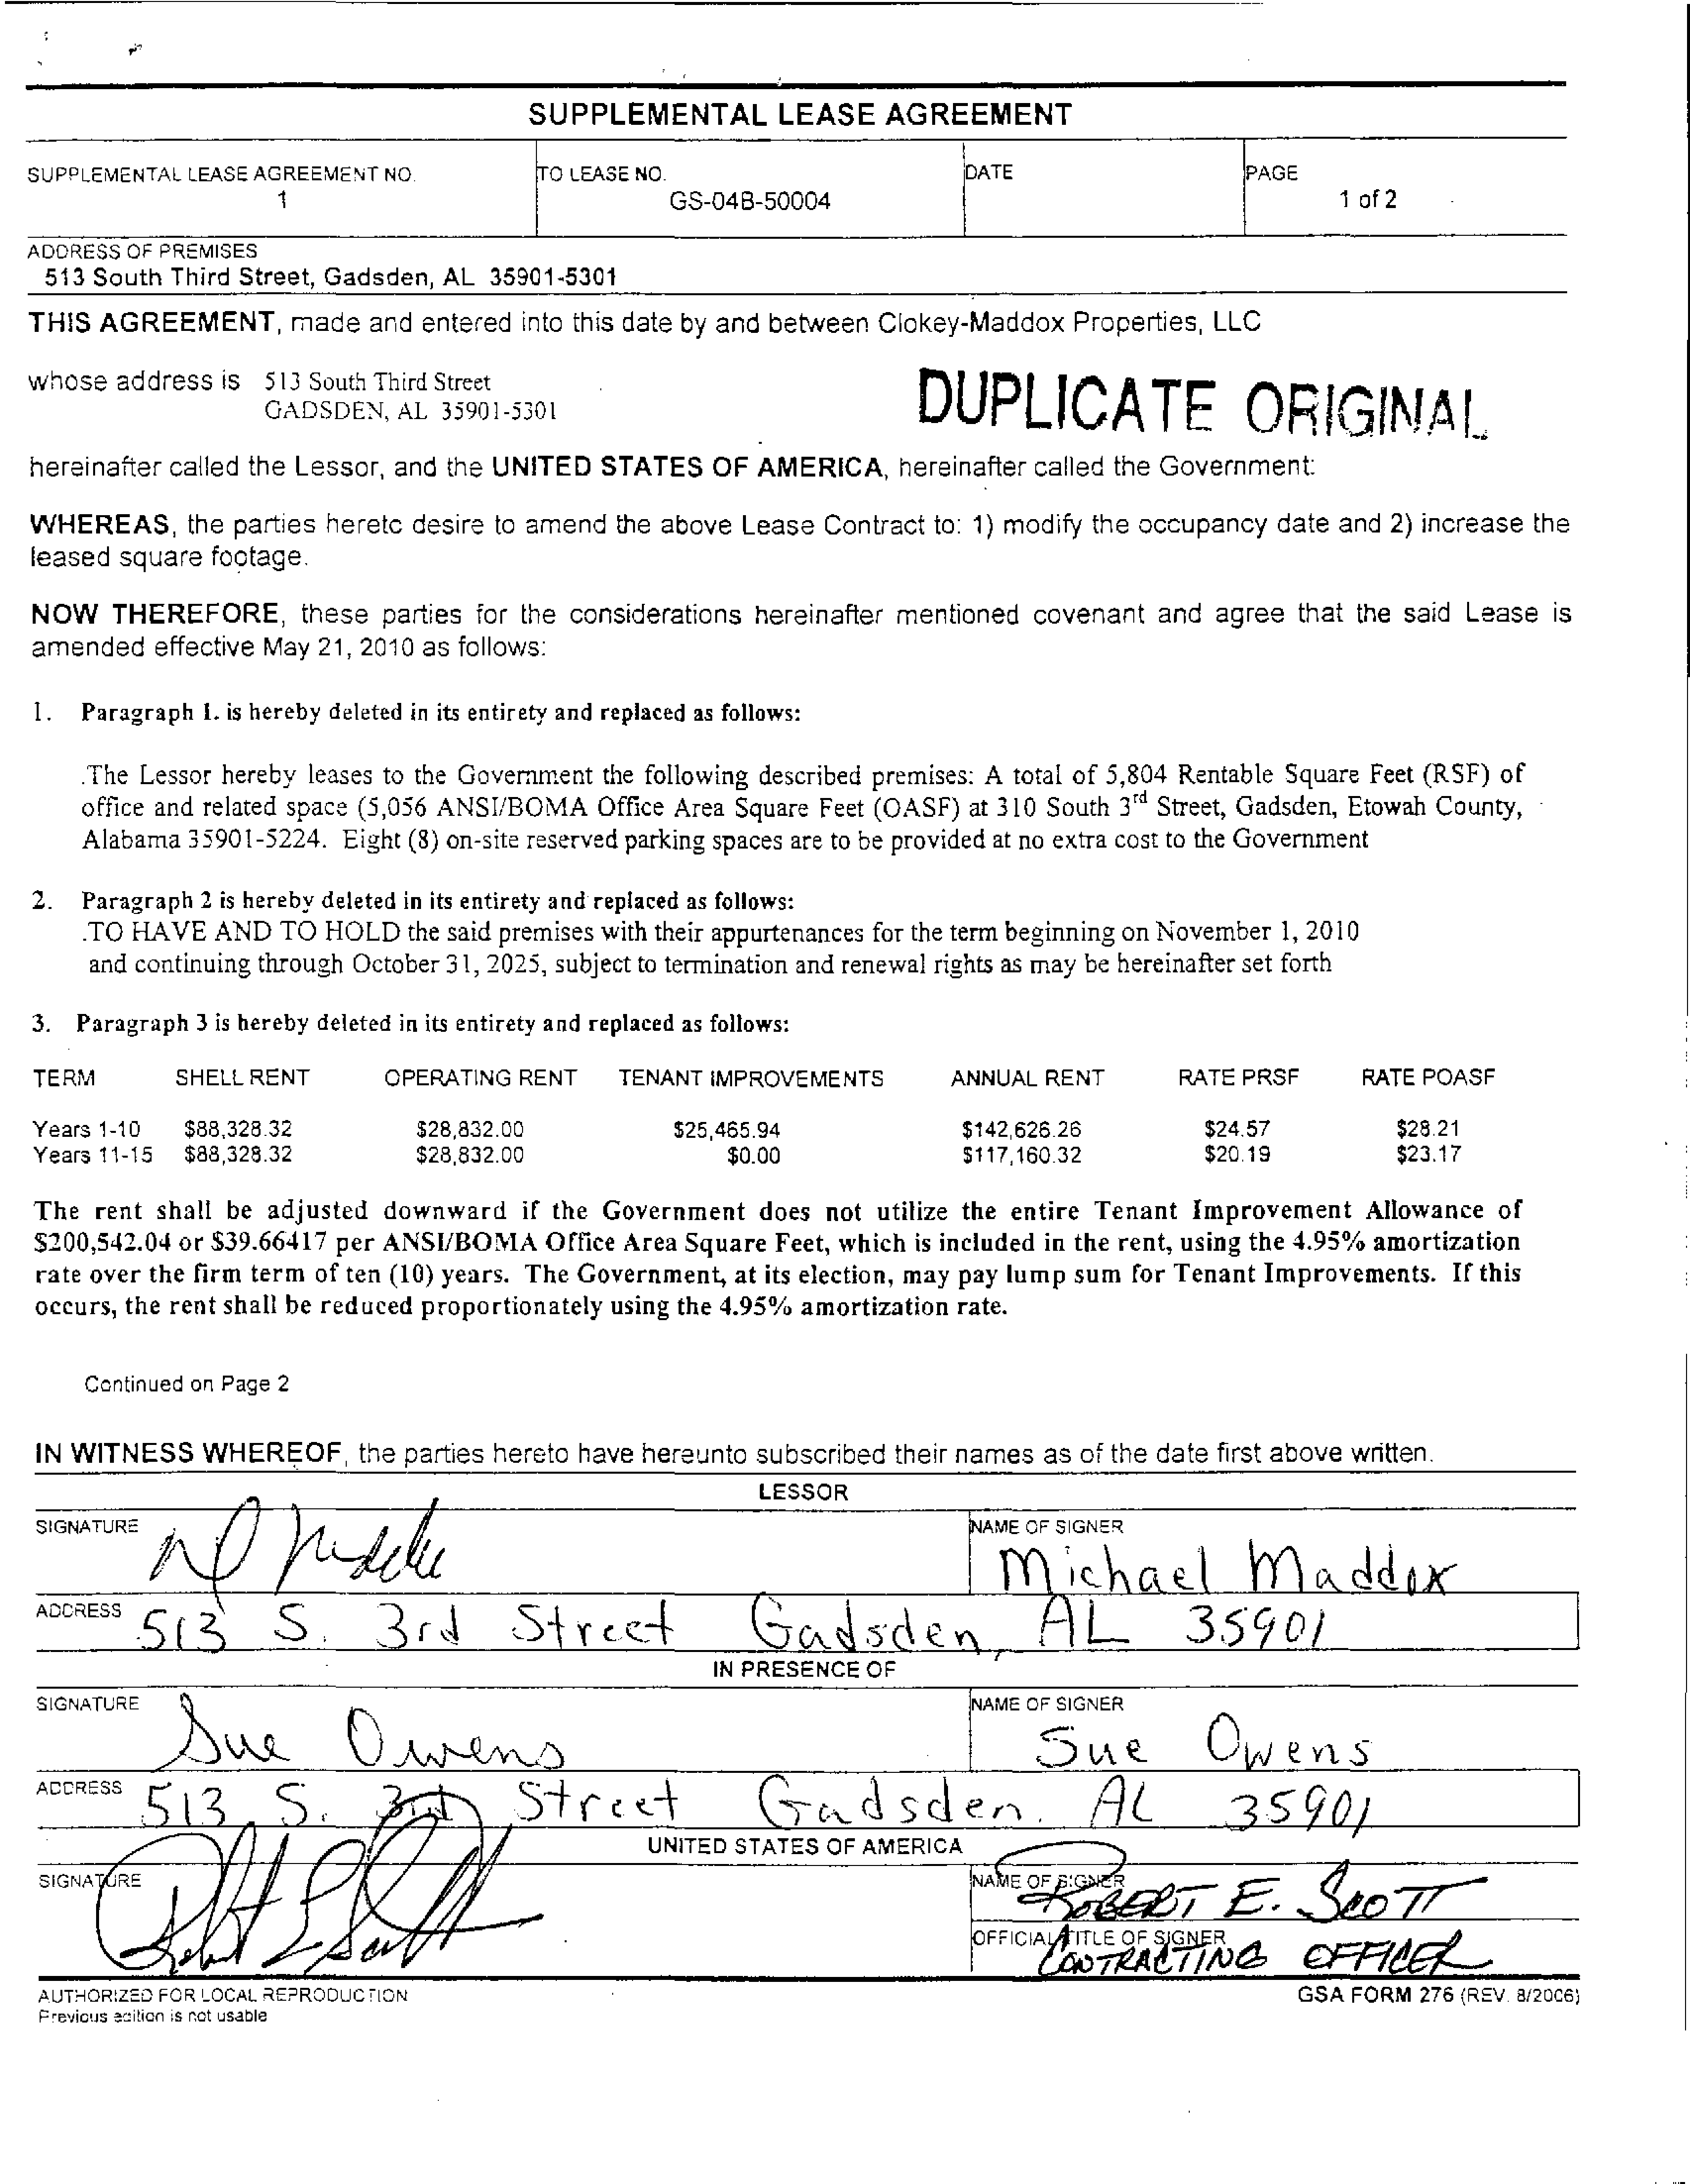 SUPPLEMENTAL LEASE AGREEMENT
SUPPLEMENTAL LEASE AGREEMENT NO.
1
TO LEASE NO.
GS-04B-50004
DATE
PAGE
1 of 2
ADDRESS OF PREMISES
513 South Third Street, Gadsden, AL 35901-5301
THIS AGREEMENT, made and entered into this date by and between Clokey-Maddox Properties, LLC
whose address is 513 South Third Street
GADSDEN, AL 35901-5301
DUPLICATE ORIGINAL
hereinafter called the Lessor, and the UNITED STATES OF AMERICA, hereinafter called the Government:
WHEREAS, the parties hereto desire to amend the above Lease Contract to: 1) modify the occupancy date and 2) increase the
leased square footage.
NOW THEREFORE, these parties for the considerations hereinafter mentioned covenant and agree that the said Lease is
amended effective May 21, 2010 as follows:
1. Paragraph 1. is hereby deleted in its entirety and replaced as follows:
.The Lessor hereby leases to the Government the following described premises: A total of 5,804 Rentable Square Feet (RSF) of
office and related space (5,056 ANSI/BOMA Office Area Square Feet (OASF) at 310 South 3rd Street, Gadsden, Etowah County,
Alabama 35901-5224. Eight (8) on-site reserved parking spaces are to be provided at no extra cost to the Government
2. Paragraph 2 is hereby deleted in its entirety and replaced as follows:
.TO HAVE AND TO HOLD the said premises with their appurtenances for the term beginning on November 1, 2010
and continuing through October 31, 2025, subject to termination and renewal rights as may be hereinafter set forth
3. Paragraph 3 is hereby deleted in its entirety and replaced as follows:
TERM SHELL RENT OPERATING RENT TENANT IMPROVEMENTS ANNUAL RENT RATE PRSF RATE POASF
Years 1-10 $88,328.32 $28,832.00 $25,465.94 $142,626.26 $24.57 $28.21
Years 11-15 $88,328.32 $28,832.00 $0.00 $117,160.32 $20.19 $23.17
The rent shall be adjusted downward if the Government does not utilize the entire Tenant Improvement Allowance of
$200,542.04 or $39.66417 per ANSI/BOMA Office Area Square Feet, which is included in the rent, using the 4.95% amortization
rate over the firm term of ten (10) years. The Government, at its election, may pay lump sum for Tenant Improvements. If this
occurs, the rent shall be reduced proportionately using the 4.95% amortization rate.
Continued on Page 2
IN WITNESS WHEREOF, the parties hereto have hereunto subscribed their names as of the date first above written.
LESSOR
SIGNATURE
NAME OF SIGNER
Michael Maddox
ADDRESS 513 S. 3rd Street Gadsden, AL 35901
IN PRESENCE OF
SIGNATURE
Sue Owens
NAME OF SIGNER
Sue Owens
ADDRESS 513 S. 3rd Street Gadsden, AL 35901
UNITED STATES OF AMERICA
SIGNATURE
Robert E Scott
NAME OF SIGNER
ROBERT E. SCOTT
OFFICIAL TITLE OF SIGNER
CONTRACTING OFFICER
AUTHORIZED FOR LOCAL REPRODUCTION
Previous edition is not usable
GSA FORM 276 (REV. 8/2006)